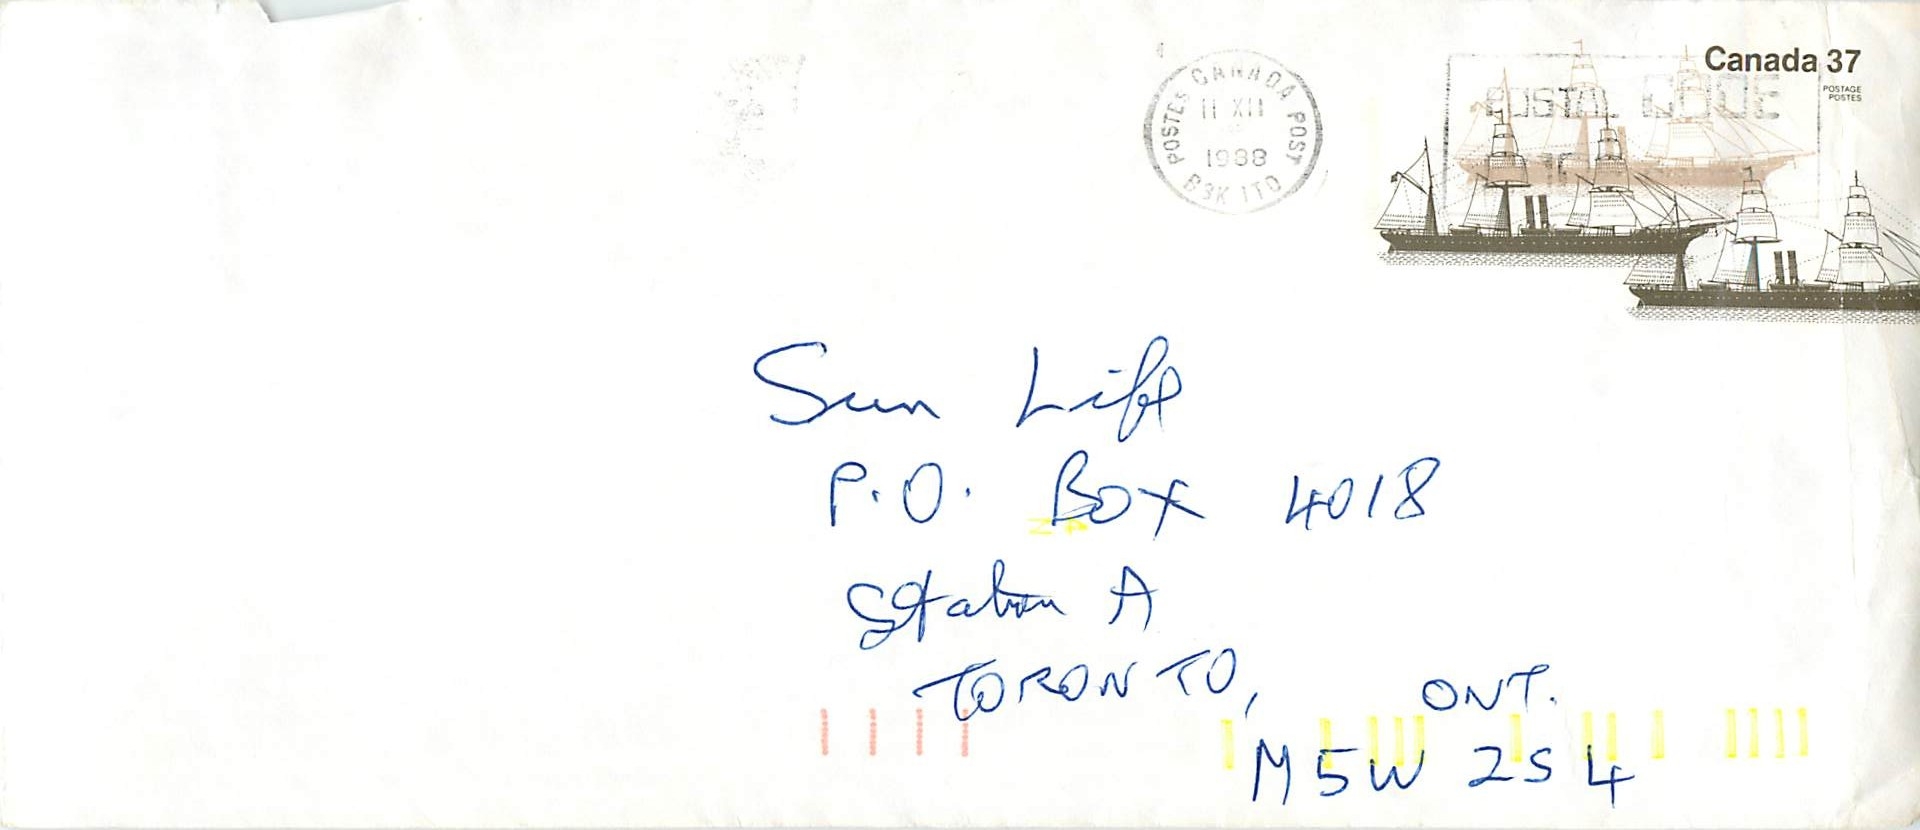 Canada 37
POSTAGE
POSTES
POSTES CANADA POST
11 XII
1988
B3K 1T0
POSTAL CODE
Sun Life
P.O. Box 4018
Station A
TORONTO, ONT.
M5W 2S4